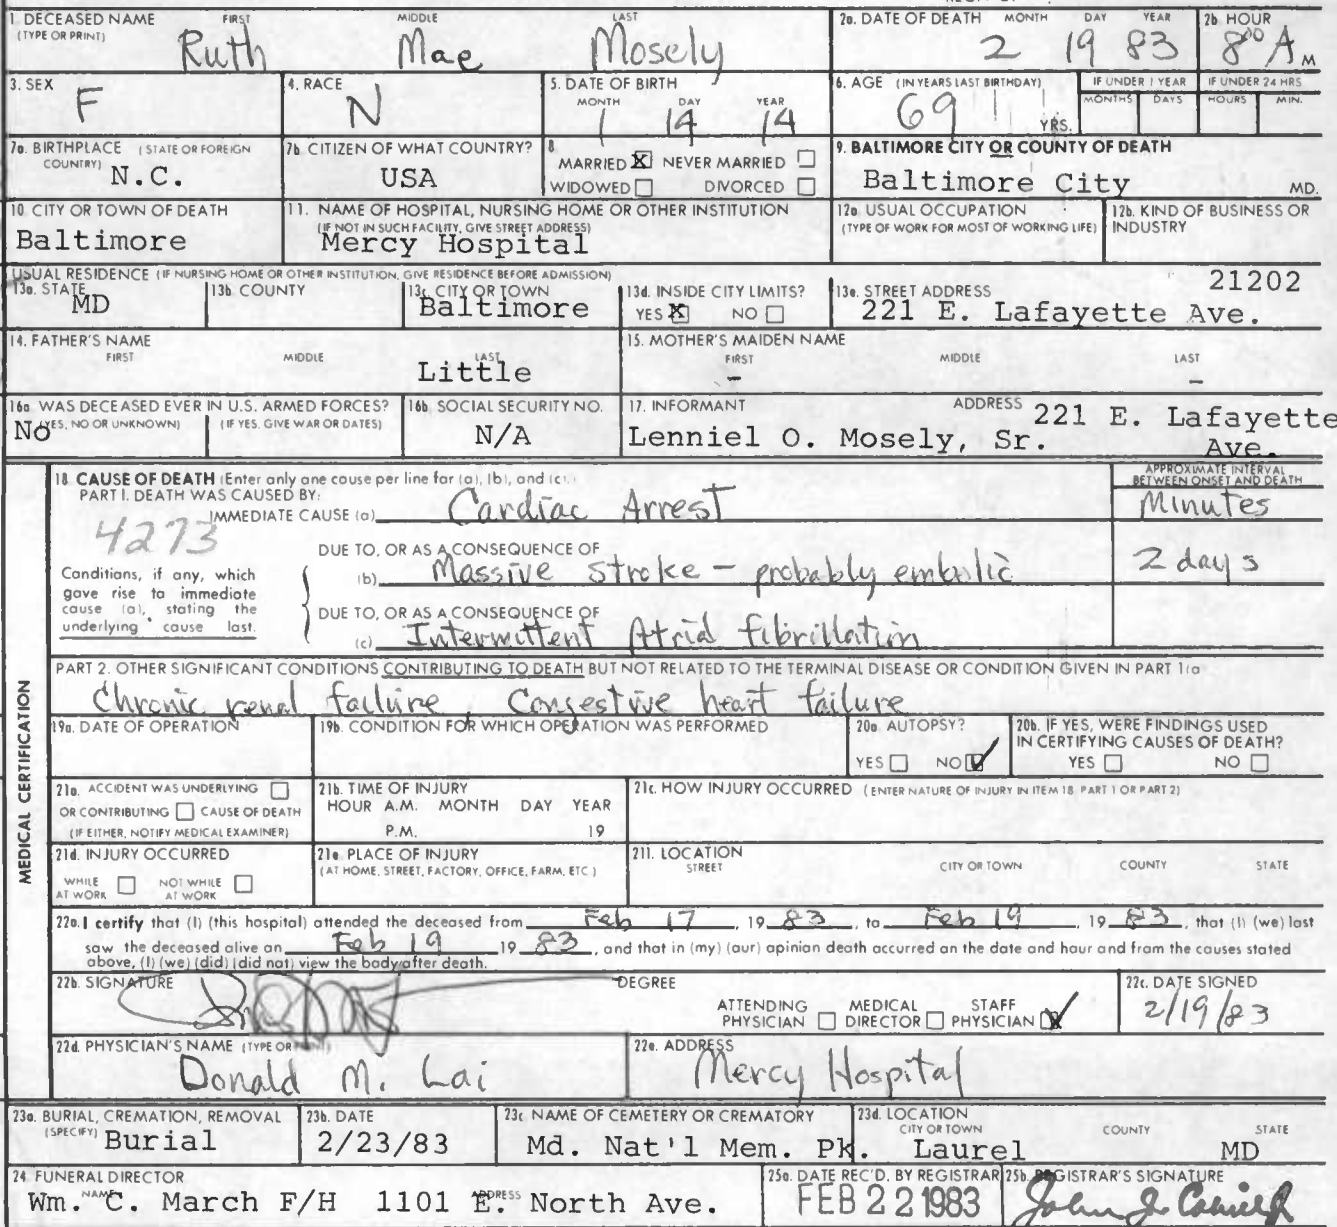 1. DECEASED NAME FIRST MIDDLE LAST
(TYPE OR PRINT) Ruth Mae Mosely
2a. DATE OF DEATH MONTH DAY YEAR
2 19 83
2b HOUR
8 00 A M
3. SEX
F
4. RACE
N
5. DATE OF BIRTH
MONTH DAY YEAR
1 14 14
6. AGE (IN YEARS LAST BIRTHDAY)
69 YRS.
IF UNDER 1 YEAR
MONTHS DAYS
IF UNDER 24 HRS
HOURS MIN.
7a. BIRTHPLACE (STATE OR FOREIGN
COUNTRY) N.C.
7b. CITIZEN OF WHAT COUNTRY?
USA
8
MARRIED X NEVER MARRIED
WIDOWED DIVORCED
9. BALTIMORE CITY OR COUNTY OF DEATH
Baltimore City MD.
10 CITY OR TOWN OF DEATH
Baltimore
11. NAME OF HOSPITAL, NURSING HOME OR OTHER INSTITUTION
(IF NOT IN SUCH FACILITY, GIVE STREET ADDRESS)
Mercy Hospital
12a. USUAL OCCUPATION
(TYPE OF WORK FOR MOST OF WORKING LIFE)
12b. KIND OF BUSINESS OR
INDUSTRY
USUAL RESIDENCE (IF NURSING HOME OR OTHER INSTITUTION, GIVE RESIDENCE BEFORE ADMISSION)
13a. STATE
MD
13b. COUNTY
13c. CITY OR TOWN
Baltimore
13d. INSIDE CITY LIMITS?
YES X NO
13e. STREET ADDRESS 21202
221 E. Lafayette Ave.
14. FATHER'S NAME
FIRST MIDDLE LAST
Little
15. MOTHER'S MAIDEN NAME
FIRST MIDDLE LAST
- -
16a WAS DECEASED EVER IN U.S. ARMED FORCES?
(YES, NO OR UNKNOWN) (IF YES, GIVE WAR OR DATES)
No
16b. SOCIAL SECURITY NO.
N/A
17. INFORMANT ADDRESS 221 E. Lafayette
Lenniel O. Mosely, Sr. Ave.
MEDICAL CERTIFICATION
18. CAUSE OF DEATH (Enter only one cause per line for (a), (b), and (c).)
PART I. DEATH WAS CAUSED BY:
APPROXIMATE INTERVAL
BETWEEN ONSET AND DEATH
IMMEDIATE CAUSE (a) Cardiac Arrest Minutes
4273
DUE TO, OR AS A CONSEQUENCE OF
(b) Massive stroke - probably embolic 2 days
Conditions, if any, which
gave rise to immediate
cause (a), stating the
underlying cause last.
DUE TO, OR AS A CONSEQUENCE OF
(c) Intermittent Atrial fibrillation
PART 2. OTHER SIGNIFICANT CONDITIONS CONTRIBUTING TO DEATH BUT NOT RELATED TO THE TERMINAL DISEASE OR CONDITION GIVEN IN PART 1(a
Chronic renal failure, Congestive heart failure
19a. DATE OF OPERATION
19b. CONDITION FOR WHICH OPERATION WAS PERFORMED
20a. AUTOPSY?
YES NO ✓
20b. IF YES, WERE FINDINGS USED
IN CERTIFYING CAUSES OF DEATH?
YES NO
21a. ACCIDENT WAS UNDERLYING
OR CONTRIBUTING CAUSE OF DEATH
(IF EITHER, NOTIFY MEDICAL EXAMINER)
21b. TIME OF INJURY
HOUR A.M. MONTH DAY YEAR
P.M. 19
21c. HOW INJURY OCCURRED (ENTER NATURE OF INJURY IN ITEM 18. PART 1 OR PART 2)
21d. INJURY OCCURRED
WHILE AT WORK NOT WHILE AT WORK
21e. PLACE OF INJURY
(AT HOME, STREET, FACTORY, OFFICE, FARM, ETC.)
21f. LOCATION
STREET CITY OR TOWN COUNTY STATE
22a. I certify that (I) (this hospital) attended the deceased from Feb 17, 19 83, to Feb 19, 19 83, that (I) (we) last
saw the deceased alive on Feb 19 19 83, and that in (my) (our) opinion death occurred on the date and hour and from the causes stated
above, (I) (we) (did) (did not) view the body after death.
22b. SIGNATURE DEGREE
ATTENDING PHYSICIAN MEDICAL DIRECTOR STAFF PHYSICIAN ✓
22c. DATE SIGNED
2/19/83
22d. PHYSICIAN'S NAME (TYPE OR PRINT)
Donald M. Lai
22e. ADDRESS
Mercy Hospital
23a. BURIAL, CREMATION, REMOVAL
(SPECIFY) Burial
23b. DATE
2/23/83
23c. NAME OF CEMETERY OR CREMATORY
Md. Nat'l Mem. Pk.
23d. LOCATION
CITY OR TOWN COUNTY STATE
Laurel MD
24. FUNERAL DIRECTOR
NAME ADDRESS
Wm. C. March F/H 1101 E. North Ave.
25a. DATE REC'D. BY REGISTRAR
FEB 22 1983
25b. REGISTRAR'S SIGNATURE